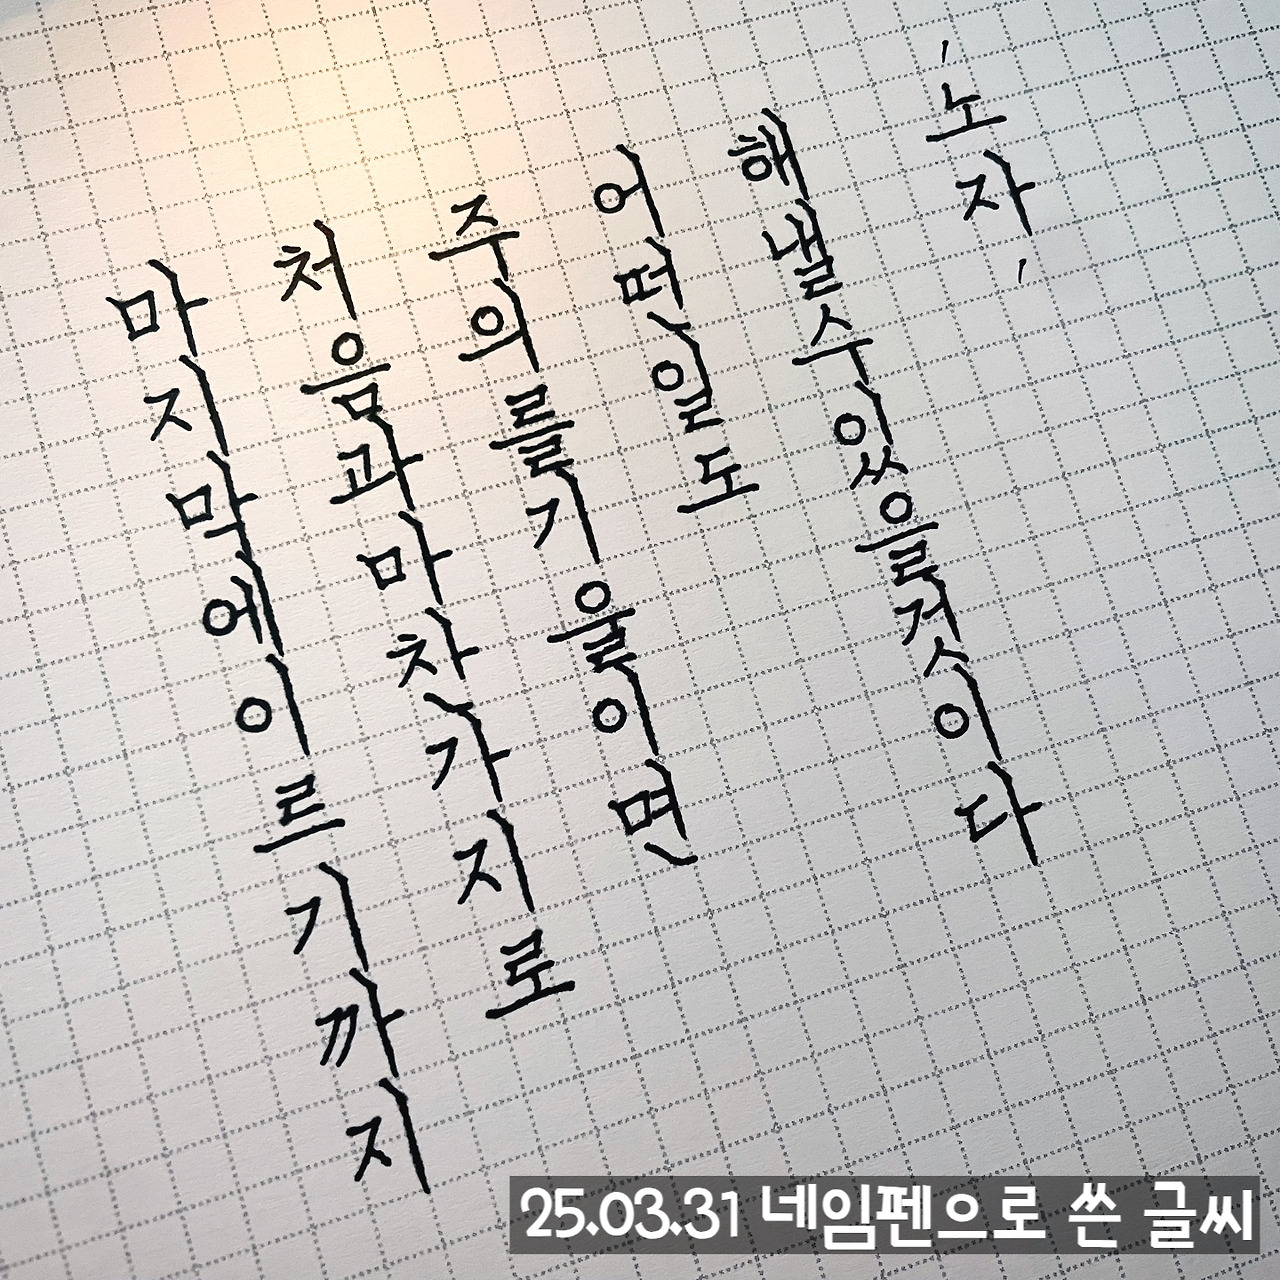 마지막에 이르기까지
처음과 마찬가지로
주의를 기울이면
어떤 일도
해낼 수 있을 것이다
'노자'
25.03.31 네임펜으로 쓴 글씨